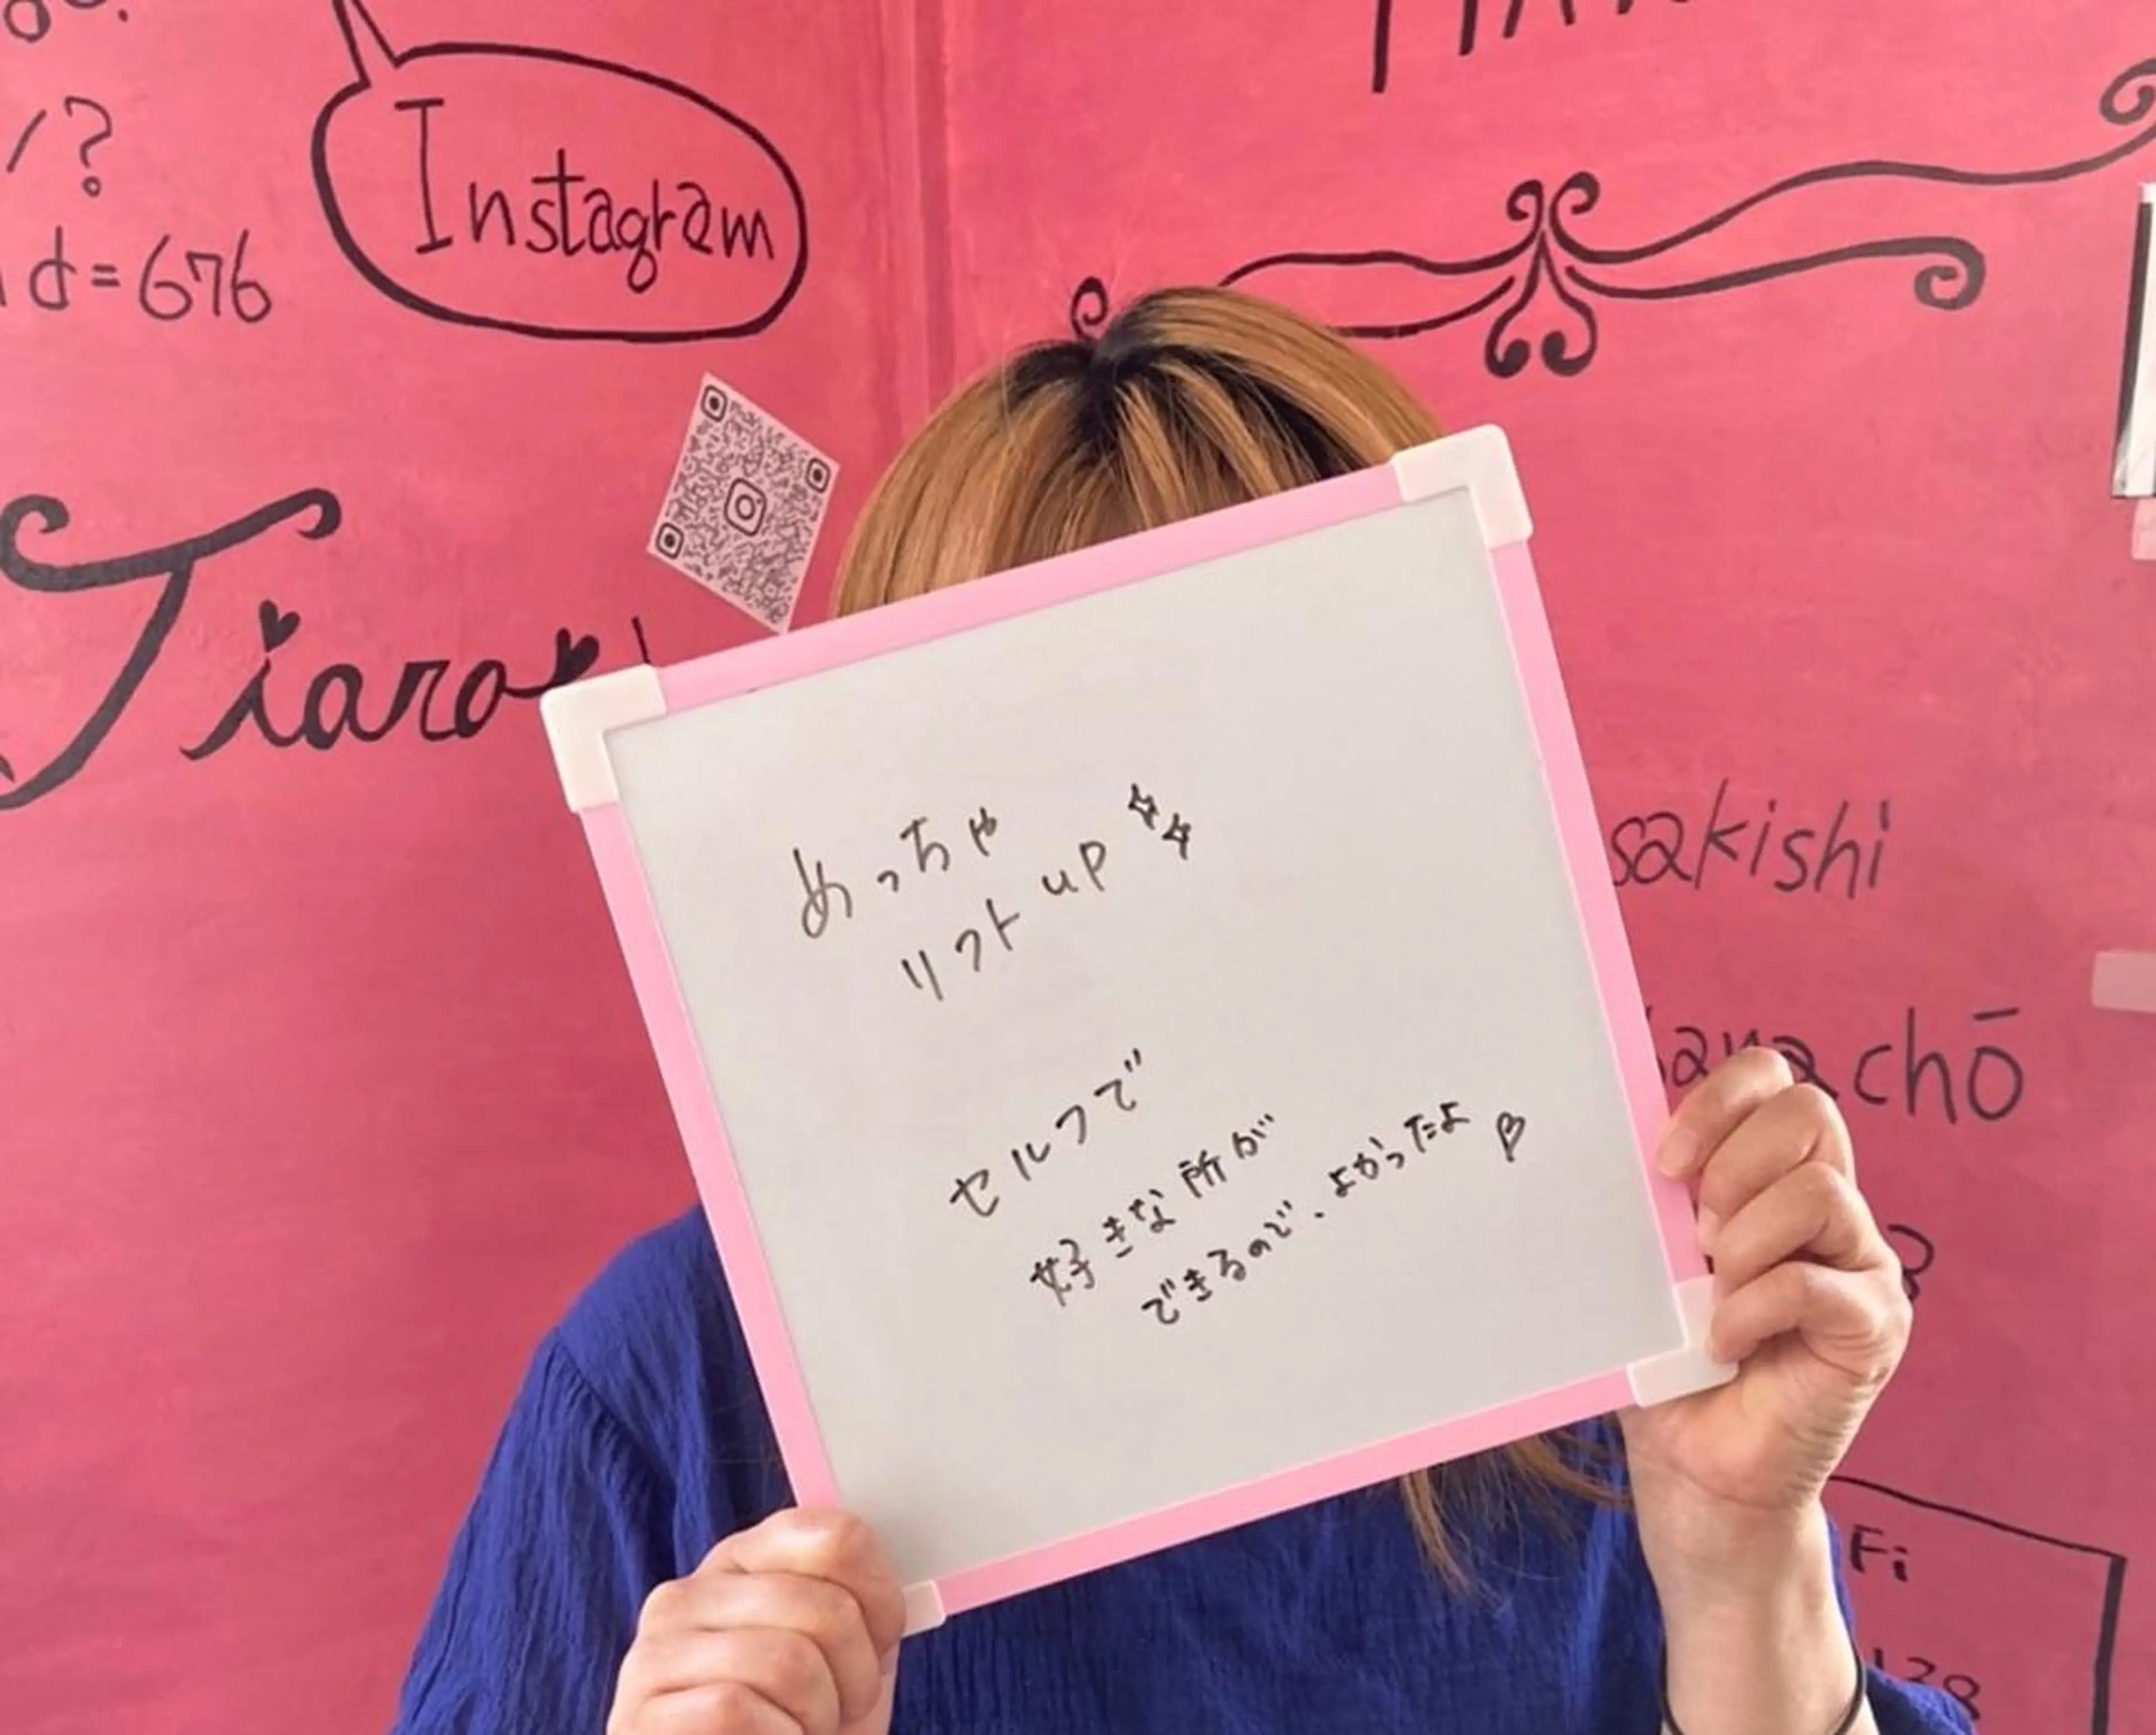 Instagram
/?
id=676
Tiara
sakishi
chō
Fi
めっちゃ
リフトup☆☆
セルフで
好きな所が
できるので、よかったよ♡